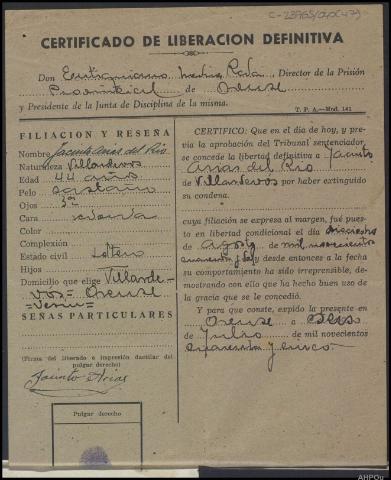 C-23965/apo(47)
CERTIFICADO DE LIBERACION DEFINITIVA
Don Medina Director de la Prisión
Provincial de Orense
y Presidente de la Junta de Disciplina de la misma.
T. P. A.—Mod. 141
FILIACION Y RESEÑA
Nombre Jacinto Arias del Rio
Naturaleza Villardevos
Edad 44 años
Pelo castaño
Ojos
Cara
Color
Complexión
Estado civil soltero
Hijos
Domicilio que elige Villarde-
vos = Orense =
= Verin =
SEÑAS PARTICULARES
(Firma del liberado e impresión dactilar del
pulgar derecho)
Jacinto Arias
Pulgar derecho
CERTIFICO: Que en el día de hoy, y pre-
via la aprobación del Tribunal sentenciador
se concede la libertad definitiva a Jacinto
Arias del Rio
de Villardevos por haber extinguido
su condena.
cuya filiación se expresa al margen, fué pues-
to en libertad condicional el día
de Agosto de mil novecientos
cuarenta y desde entonces a la fecha
su comportamiento ha sido irreprensible, de-
mostrando con ello que ha hecho buen uso
de la gracia que se le concedió.
Y para que conste, expido la presente en
Orense a
de Julio de mil novecientos
cuarenta y cinco.
AHPOu